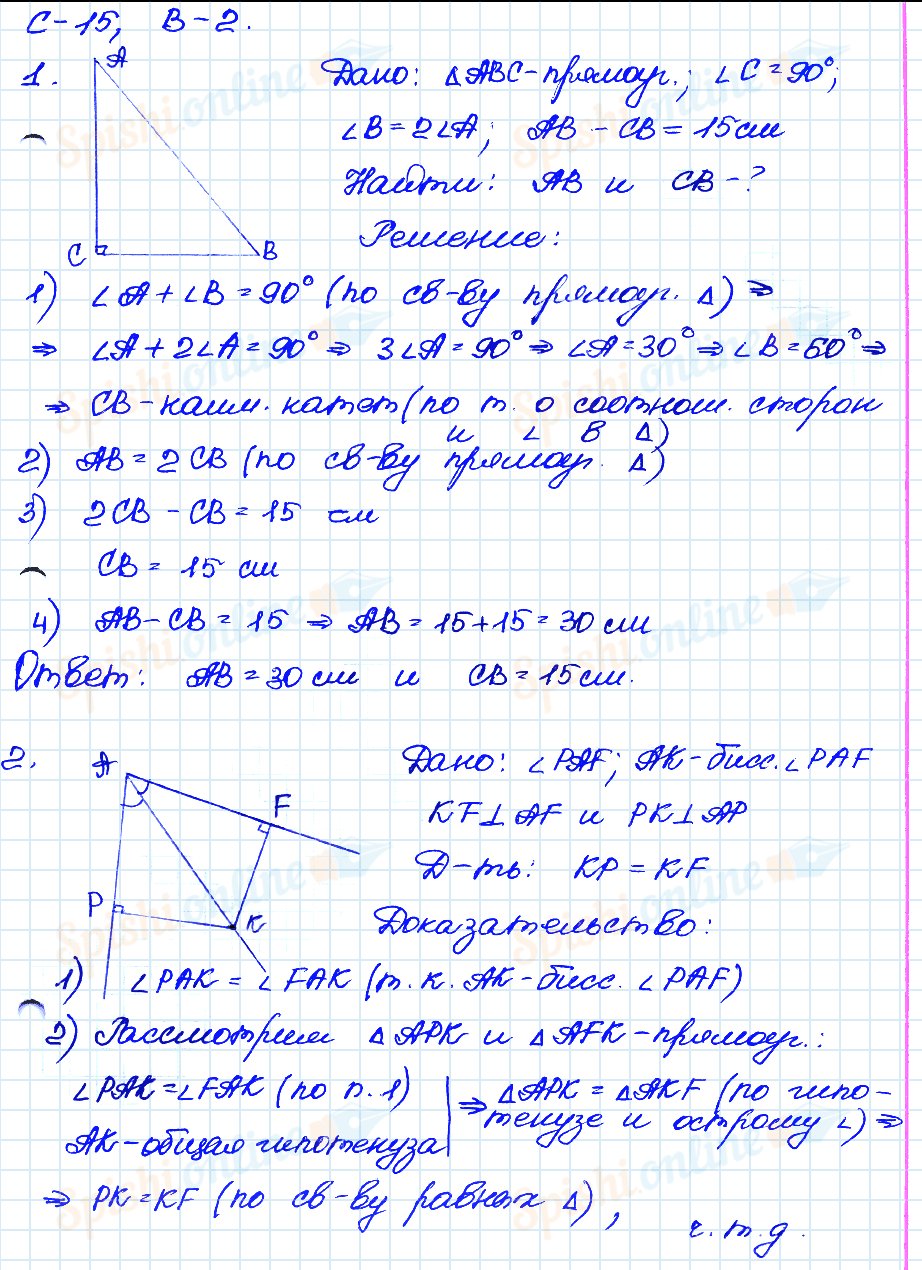 С-15, В-2.
1.
A
C
B
Дано: ΔABC-прямоуг.; ∠C=90°;
∠B=2∠A; AB-CB=15см
Найти: AB и CB-?
Решение:
1) ∠A+∠B=90° (по св-ву прямоуг. Δ) ⇒
⇒ ∠A+2∠A=90° ⇒ 3∠A=90° ⇒ ∠A=30° ⇒ ∠B=60° ⇒
⇒ CB-наим. катет (по т. о соотнош. сторон
и ∠ в Δ)
2) AB=2CB (по св-ву прямоуг. Δ)
3) 2CB-CB=15 см
CB=15 см
4) AB-CB=15 ⇒ AB=15+15=30 см
Ответ: AB=30 см и CB=15см.
2.
A
F
P
K
Дано: ∠PAF; AK-бисс. ∠PAF
KF⊥AF и PK⊥AP
Д-ть: KP=KF
Доказательство:
1) ∠PAK=∠FAK (т.к. AK-бисс. ∠PAF)
2) Рассмотрим ΔAPK и ΔAFK-прямоуг.:
∠PAK=∠FAK (по п.1)
AK-общая гипотенуза
⇒ ΔAPK=ΔAKF (по гипо-
тенузе и острому ∠) ⇒
⇒ PK=KF (по св-ву равных Δ),
ч.т.д.
Spishi.online